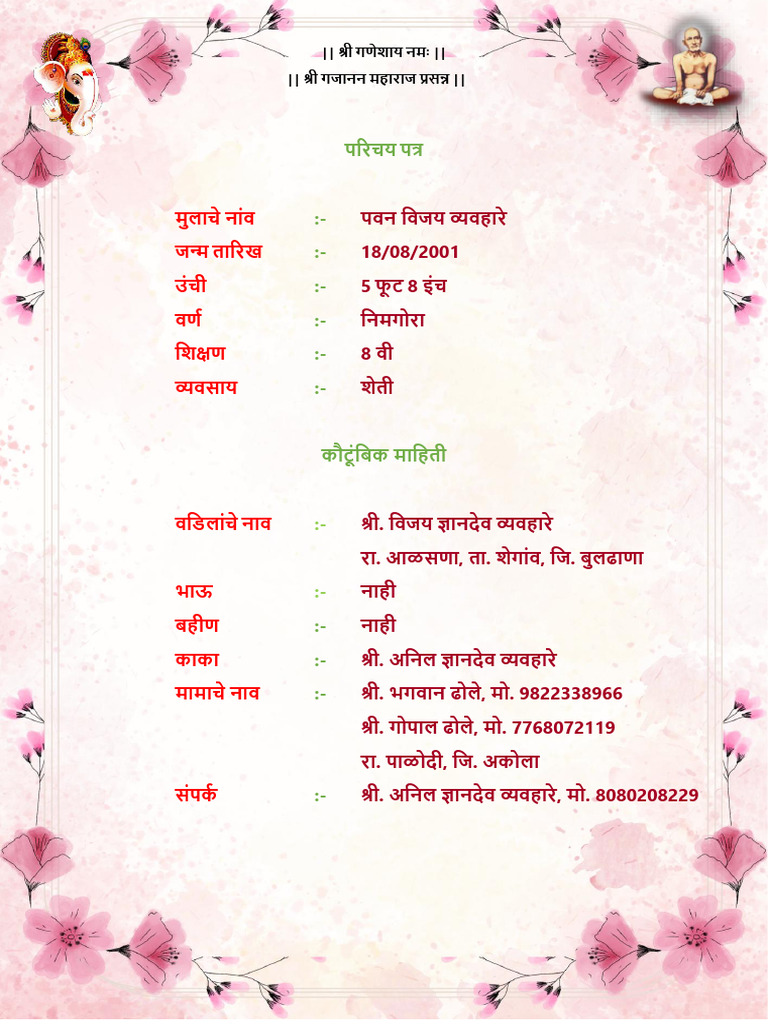 || श्री गणेशाय नमः ||
|| श्री गजानन महाराज प्रसन्न ||
परिचय पत्र
मुलाचे नांव :- पवन विजय व्यवहारे
जन्म तारिख :- 18/08/2001
उंची :- 5 फूट 8 इंच
वर्ण :- निमगोरा
शिक्षण :- 8 वी
व्यवसाय :- शेती
कौटूंबिक माहिती
वडिलांचे नाव :- श्री. विजय ज्ञानदेव व्यवहारे
रा. आळसणा, ता. शेगांव, जि. बुलढाणा
भाऊ :- नाही
बहीण :- नाही
काका :- श्री. अनिल ज्ञानदेव व्यवहारे
मामाचे नाव :- श्री. भगवान ढोले, मो. 9822338966
श्री. गोपाल ढोले, मो. 7768072119
रा. पाळोदी, जि. अकोला
संपर्क :- श्री. अनिल ज्ञानदेव व्यवहारे, मो. 8080208229